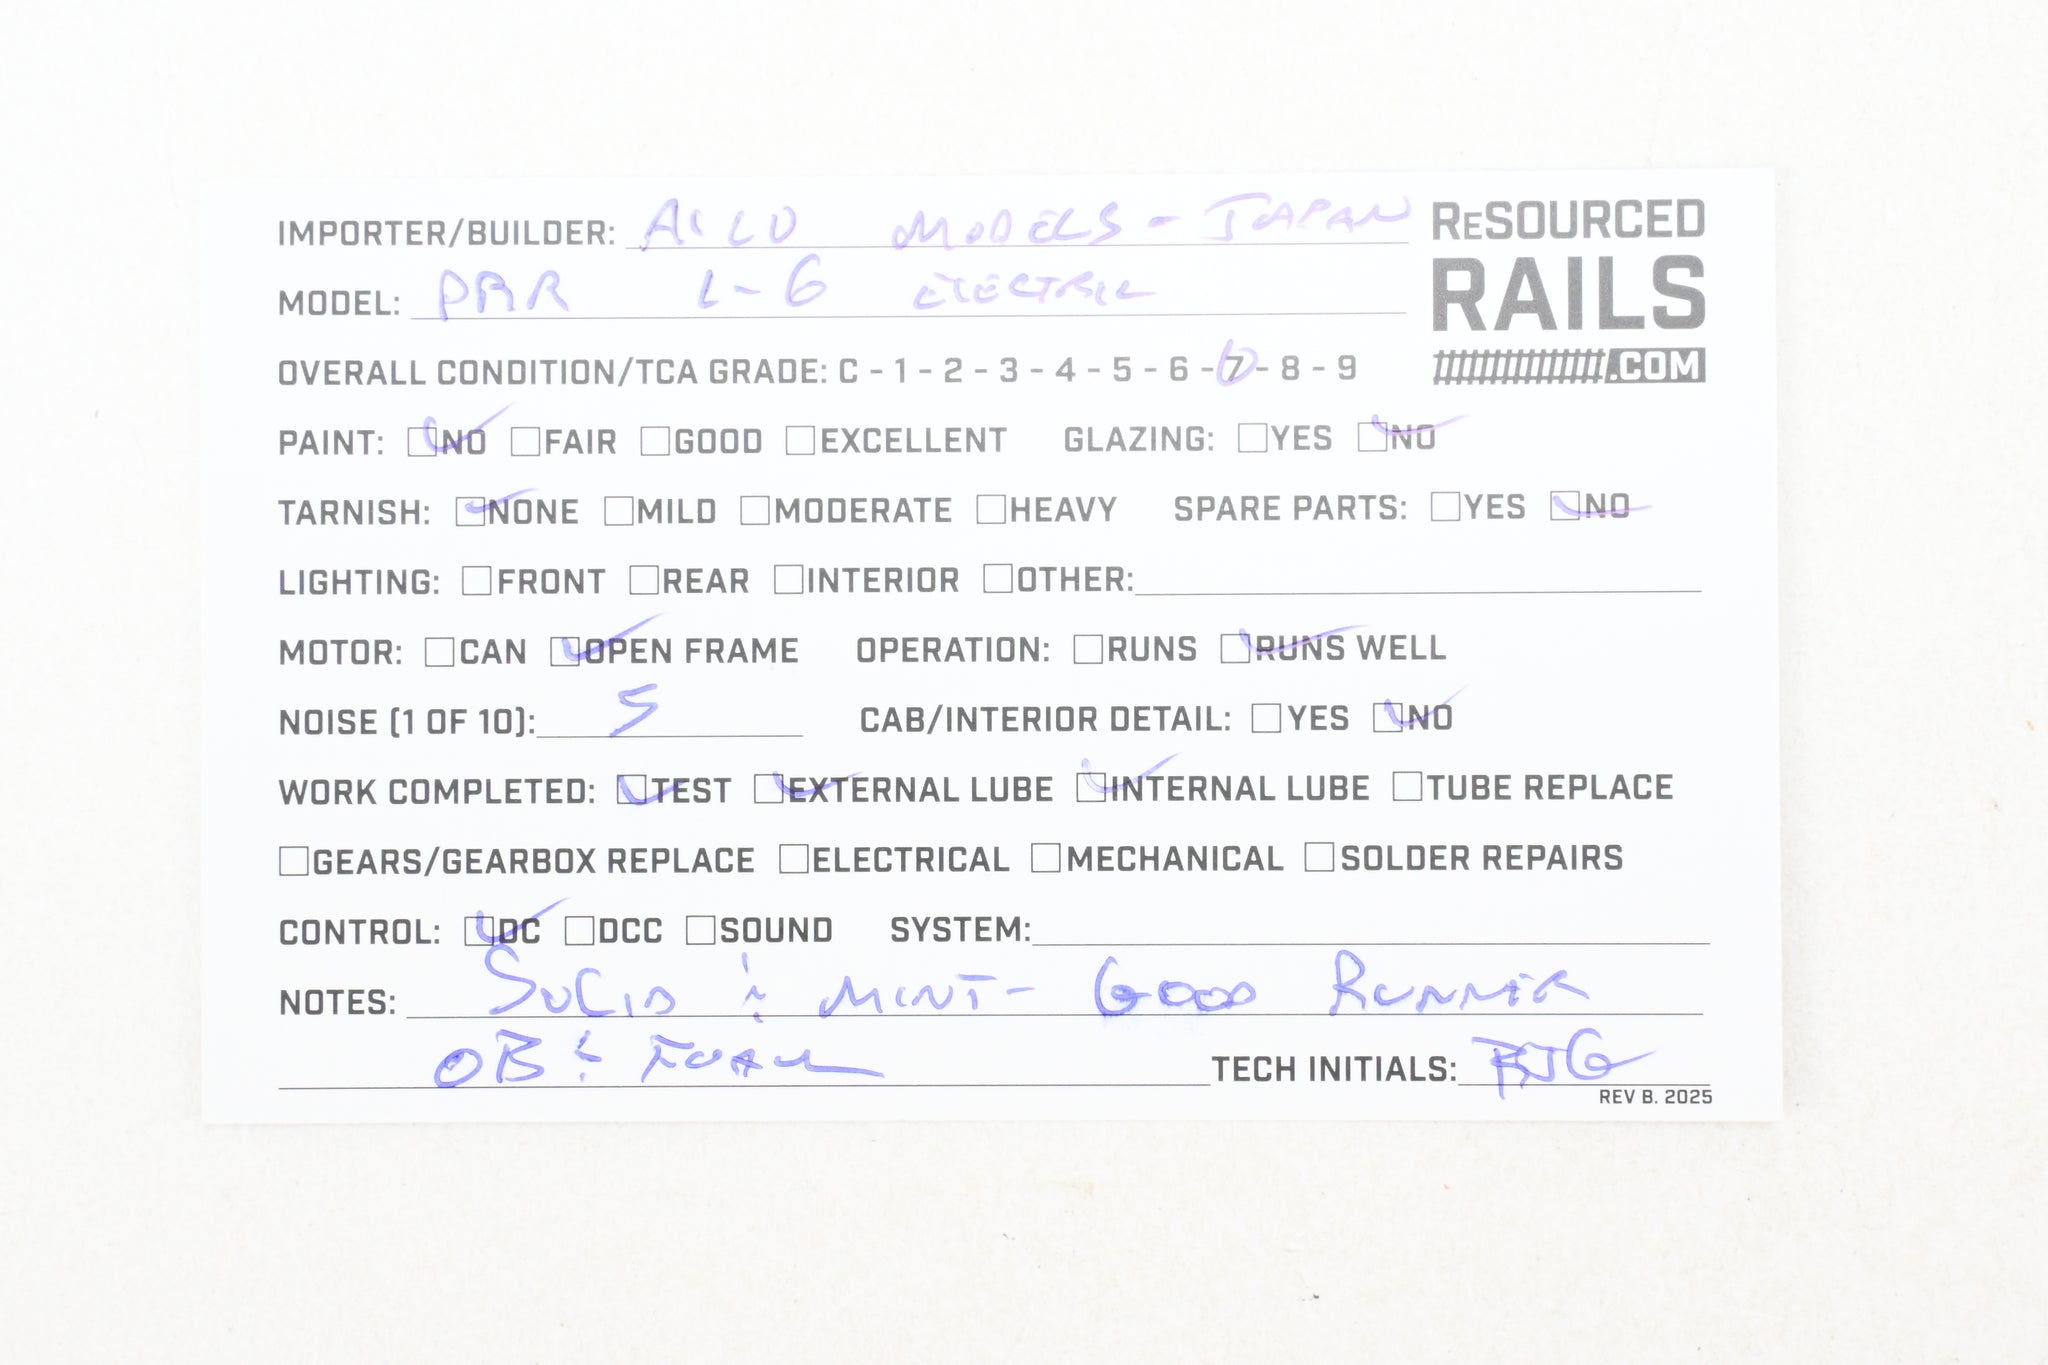 IMPORTER/BUILDER: MODELS - JAPAN
ReSOURCED
RAILS
.COM
MODEL: PRR L-6 ELECTRIC
OVERALL CONDITION/TCA GRADE: C - 1 - 2 - 3 - 4 - 5 - 6 - 7 - 8 - 9
PAINT: NO FAIR GOOD EXCELLENT GLAZING: YES NO
TARNISH: NONE MILD MODERATE HEAVY SPARE PARTS: YES NO
LIGHTING: FRONT REAR INTERIOR OTHER:
MOTOR: CAN OPEN FRAME OPERATION: RUNS RUNS WELL
NOISE (1 OF 10): 5 CAB/INTERIOR DETAIL: YES NO
WORK COMPLETED: TEST EXTERNAL LUBE INTERNAL LUBE TUBE REPLACE
GEARS/GEARBOX REPLACE ELECTRICAL MECHANICAL SOLDER REPAIRS
CONTROL: DC DCC SOUND SYSTEM:
NOTES: SOLID & MINT - GOOD RUNNER
OB & FOAM TECH INITIALS:
REV B. 2025